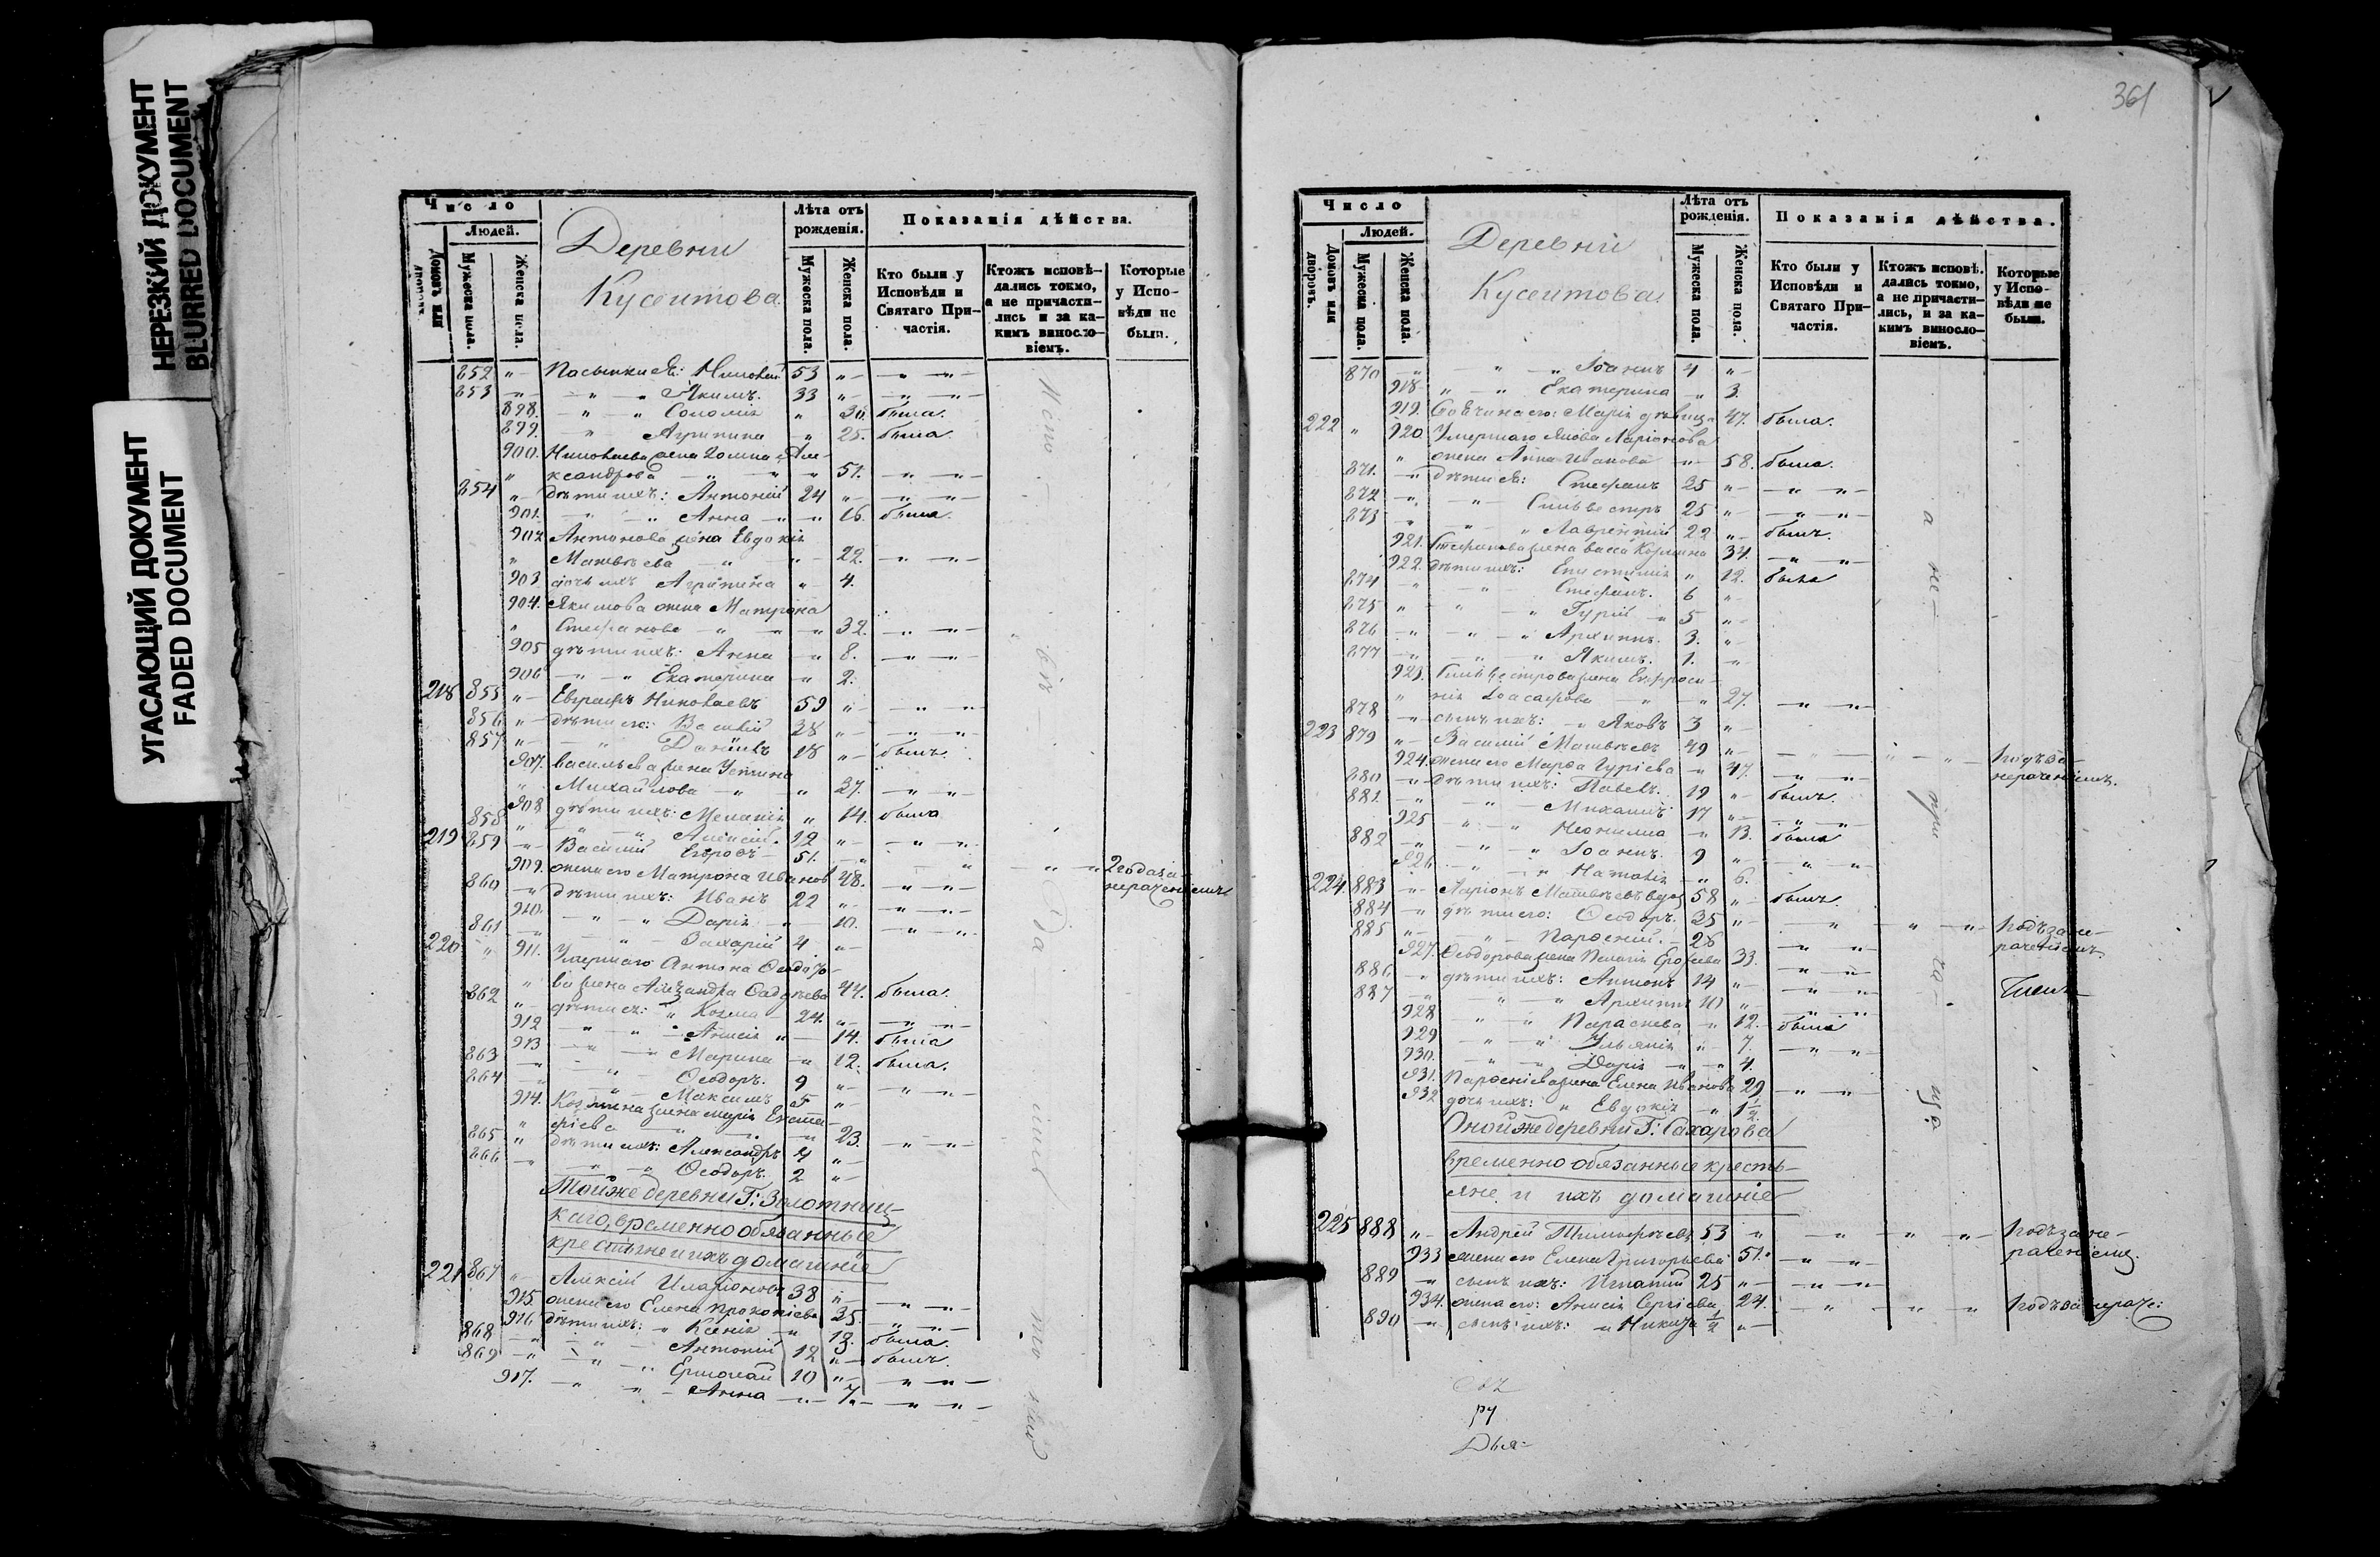 НЕРЕЗКИЙ ДОКУМЕНТ
BLURRED DOCUMENT
УГАСАЮЩИЙ ДОКУМЕНТ
FADED DOCUMENT
Число
Людей.
Домовъ или дворовъ.
Мужеска пола.
Женска пола.
Деревни
Кусеитова
Лѣта отъ рожденія.
Мужеска пола.
Женска пола.
Показанія дѣйства.
Кто были у Исповѣди и Святаго При-
частія.
Ктожъ исповѣ-
дались токмо,
а не причасти-
лись и за ка-
кимъ винosло-
віемъ.
Которые
у Испо-
вѣди не
были.
852 "- Пасынки ея: Николай 53 "- -"-"-
853 "- -"-" Якимъ. 33 "- -"-"-
898. -"-" Соломія " 30. была.
899. -" Агрипина -" 25. была.
900. Николаева жена Домна Але-
" ксандрова -"-"-" 51. -"-"-
854 "- дѣти ихъ: Антоній 24 "- -"-"-
901. -"-" Анна -"-" 16. была.
902 Антонова жена Евдокія
" Матвѣева -"-" 22. -"-"-
903 дочь ихъ Агрипина "- 4.
904. Якимова жена Матрона
" Стефанова -"-" 32. -"-"-
905 дѣти ихъ: Анна -" 8. -"-"-
906 -"-" Екатерина -" 2.
218 855 "- Евграфъ Николаевъ 59 "- -"-"-
856 "- дѣти его: Василій 38 "- -"-"-
857 "- -" Даніилъ 18 "- былъ.
907. Васильева жена Устина
" Михайлова -"-" 37. -"-"-
908 дѣти ихъ: Меланія " 14. была
858 " -"-" Алексій. 12 "- -"-"-
219 859 "- Василій Егоровъ 51. -"- " "-" 2 года за
нераченіемъ
909. жена его Матрона Иванов 48. -"-"-
860 -" дѣти ихъ: Иванъ 22 "- -"-"-
910. -"-" Дарія -"- 10. -"-"-
861 -" -" Захарій 4 "-
220 " 911. Умершаго Антона Ѳеодоро-
" ва жена Александра Фадѣева 44. была.
862 "- дѣти ея: " Козма 24. "- -"-"-
912 -"-" Анисія "- 14. была
913 -"-" Марина -" 12. была.
863 -" -" Ѳеодоръ. 9 "- -"-"-
864 -" -" Максимъ 5 "-
914. Козмина жена Марія Евста-
" фіева -"-"-" 23. -"-"-
865 " дѣти ихъ: Александръ 4 "-
866 -" -"-" Ѳеодоръ. 2 "-
Тойже деревни Г: Золотниц-
каго, временно обязанные
крестьяне и ихъ домашніе
221 867 "- Алексій Иларіоновъ 38 "- -"-"-
915. жена его Елена Прокопіева 35. -"-"-
916 дѣти ихъ: " Ксенія -" 13. была.
868 -" -"- Антоній 12 "- былъ.
869 -" -"-" Ермолай 10 "- -"-"-
917. -" "- Анна -"- 7. "-"-"-
361
Число
Людей.
Домовъ или дворовъ.
Мужеска пола.
Женска пола.
Деревни
Кусеитова
Лѣта отъ рожденія.
Мужеска пола.
Женска пола.
Показанія дѣйства.
Кто были у Исповѣди и Святаго При-
частія.
Ктожъ исповѣ.
дались токмо,
а не причасти-
лись, и за ка-
кимъ винoсло-
віемъ.
Которые
у Испо-
вѣди не
были.
870 -" " -" Іоаннъ 4 "-
918- "-" Екатерина -" 3.
919. его: Марія дѣвица 47. была.
222 " 920 Умершаго Якова Ларіонова
" жена Анна Иванова -"- 58. была.
871. -" дѣти ея: Стефанъ 35 "- -"-"-
872 -" -" Сильвестръ 25 "- -"-"-
873 -" -"-" Лаврентій 22 "- былъ.
921. Стефанова жена Васса Козмина 34. -"-"-
922. дѣти ихъ: Епистимія " 12. была
874 -" -" Стефанъ. 6 "-
875 " -"-" Гурій -" 5 "-
876 -" -"-" Архиппъ. 3. "-
877 -" -"-" Якимъ. 1. -"
923. Сильвестрова жена Евфроси-
" нія Іоасафова -"-" 27. -"-"-
878 -" сынъ ихъ: -" Яковъ 3 "-
223 879 "- Василій Матвѣевъ 49 "- -"- "-" Годъ за
нераченіемъ.
924. жена его Марфа Гуріева -" 47. -"-"-
880 -" дѣти ихъ: Павелъ. 19 "- былъ.
881. -" -" Михаилъ 17 "- -"-"-
925 "-" Неонилла -" 13. была
882 -" -"-" Іоаннъ. 9 "- -"-"-
926 -"-" Наталія -" 6.
224. 883 "- Ларіонъ Матвѣевъ вдов 58 "- былъ.
884 -" дѣти его: Ѳеодоръ. 35 "- -" "-" Годъ за не-
раченіемъ
885 "- -" Парѳеній. 28 -"-"-
927. Ѳеодорова жена Пелагія Ероѳеева 33. -"-"-
886. -" дѣти ихъ: Антонъ 14 "- -"-"-
887 -" -"-" Архиппъ 10 "- -"-"-
928 -"-" Параскева -" 12. была
929 -"-" Ульянія "- 7. -"-"-
930. -"-" Дарія -"-" 4.
931. Парѳеніева жена Елена Иванова 29 -"-"-
932 дочь ихъ: " Евдокія -" 1½
Оной же деревни Г: Сахарова
временно обязанные кресть-
яне и ихъ домашніе
225 888 "- Андрей Тимофеевъ 53 " -" "-" Годъ за не-
раченіемъ.
933 жена его Елена Григорьева 51. -"-"-
889 -" сынъ ихъ: Игнатій 25 "- -"-"-
934. жена его: Анисія Сергіева, 24. -" -"-" Годъ за нераче:
890 -" сынъ ихъ: " Никита ½ "-
ру
Дья-